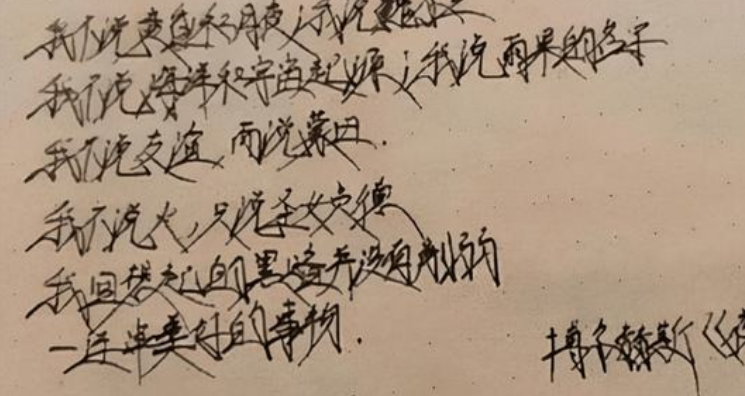 我不说黄昏和月夜；我说魏尔兰
我不说海洋和宇宙起源；我说雨果的名字
我不说友谊，而说蒙田．
我不说火，只说圣女贞德
我回想起的黑暗并没有削弱
一连串美好的事物．
博尔赫斯《